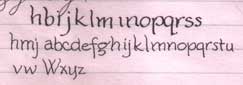 hbijklm inopqrss
hmj abcdefghijklmnopqrstu
vw Wxyz